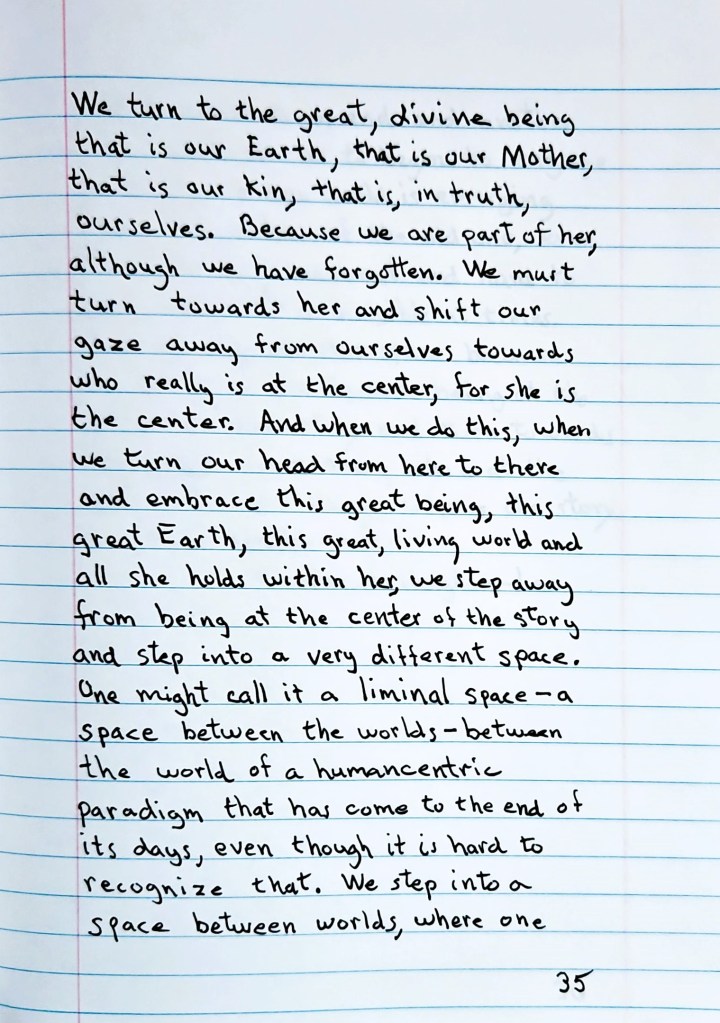 We turn to the great, divine being
that is our Earth, that is our Mother,
that is our kin, that is, in truth,
ourselves. Because we are part of her,
although we have forgotten. We must
turn towards her and shift our
gaze away from ourselves towards
who really is at the center, for she is
the center. And when we do this, when
we turn our head from here to there
and embrace this great being, this
great Earth, this great, living world and
all she holds within her, we step away
from being at the center of the story
and step into a very different space.
One might call it a liminal space – a
space between the worlds – between
the world of a humancentric
paradigm that has come to the end of
its days, even though it is hard to
recognize that. We step into a
space between worlds, where one
35